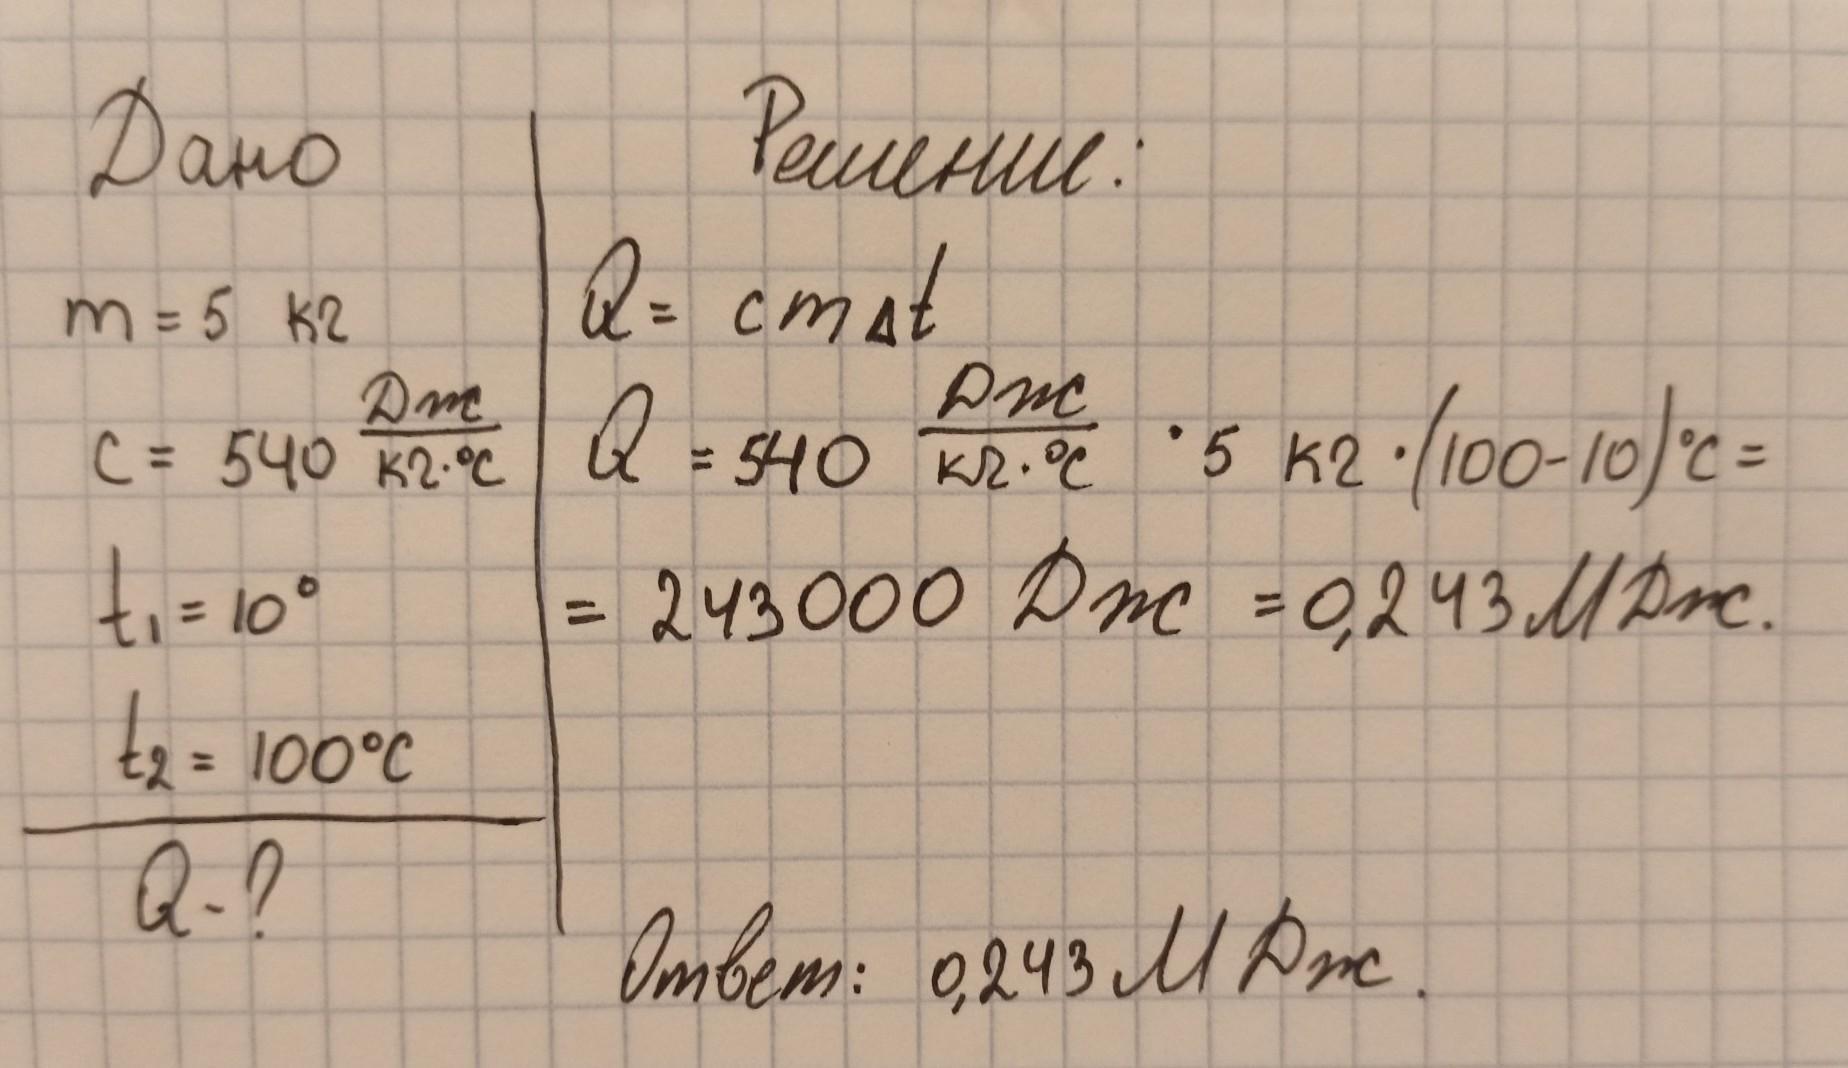 Дано
m = 5 кг
c = 540 Дж/кг·°C
t₁ = 10°
t₂ = 100°C
Q - ?
Решение:
Q = cmΔt
Q = 540 Дж/кг·°C · 5 кг · (100-10)°C =
= 243000 Дж = 0,243 МДж.
Ответ: 0,243 МДж.